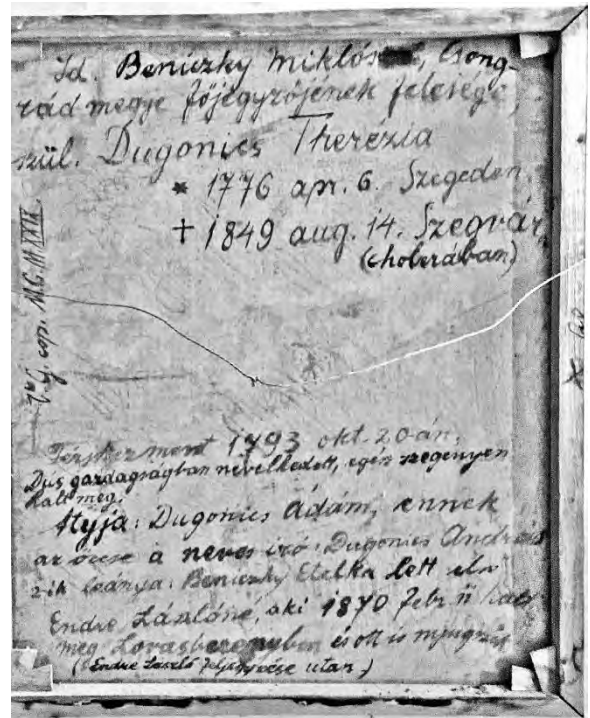 Id. Beniczky Miklósné, Csong-
rád megye főjegyzőjének felesége,
szül. Dugonics Therezia
* 1776 apr. 6. Szegeden
† 1849 aug. 14. Szegvár,
(cholerában)
Férjhez ment 1793 okt. 20-án,
Dús gazdagságban nevelkedett, egész szegényen
halt meg.
Atyja: Dugonics Ádám, ennek
az öccse a neves író: Dugonics András
leánya: Beniczky Etelka lett
Endre Lászlóné, aki 1870 febr. 11
meg Lovasberényben és ott is nyugszik
(Endre László feljegyzése után.)
cop. M.G. MXXIX